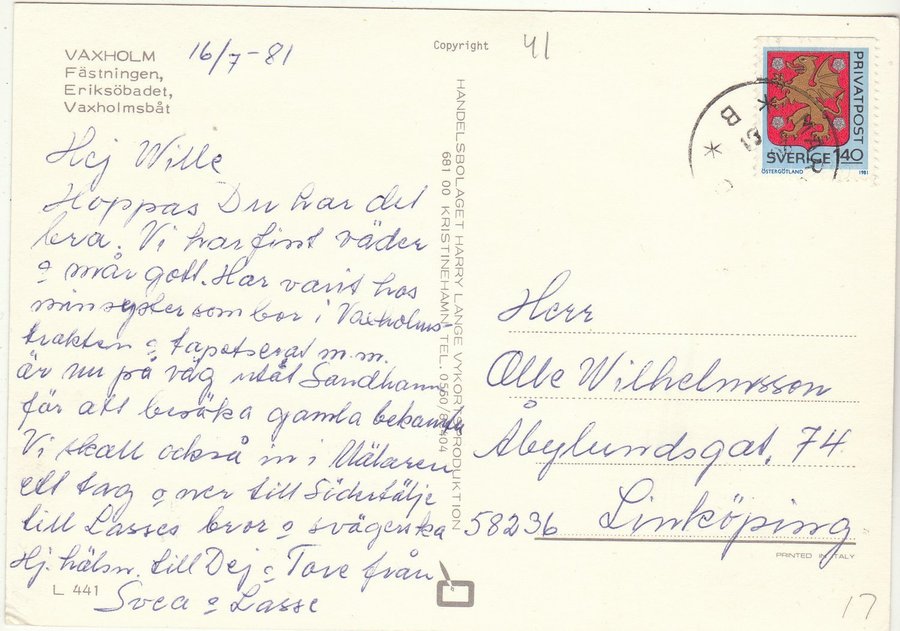 VAXHOLM
Fästningen,
Eriksöbadet,
Vaxholmsbåt
16/7-81
Copyright
41
Hej Wille
Hoppas Du har det
bra. Vi har fint väder
o mår gott. Har varit hos
min syster som bor i Vaxholms-
trakten o tapetserat m.m.
är nu på väg utåt Sandhamn
för att besöka gamla bekanta
Vi skall också in i Mälaren
ett tag o ner till Södertälje
till Lasses bror o svägerska
Hj. hälsn. till Dej o Tove från
Svea o Lasse
L 441
HANDELSBOLAGET HARRY LANGE VYKORTSPRODUKTION
681 00 KRISTINEHAMN TEL. 0550/
PRIVATPOST
SVERIGE 1.40
ÖSTERGÖTLAND 1981
B
Herr
Olle Wilhelmsson
Åbylundsgat. 74
58236 Linköping
PRINTED IN ITALY
17